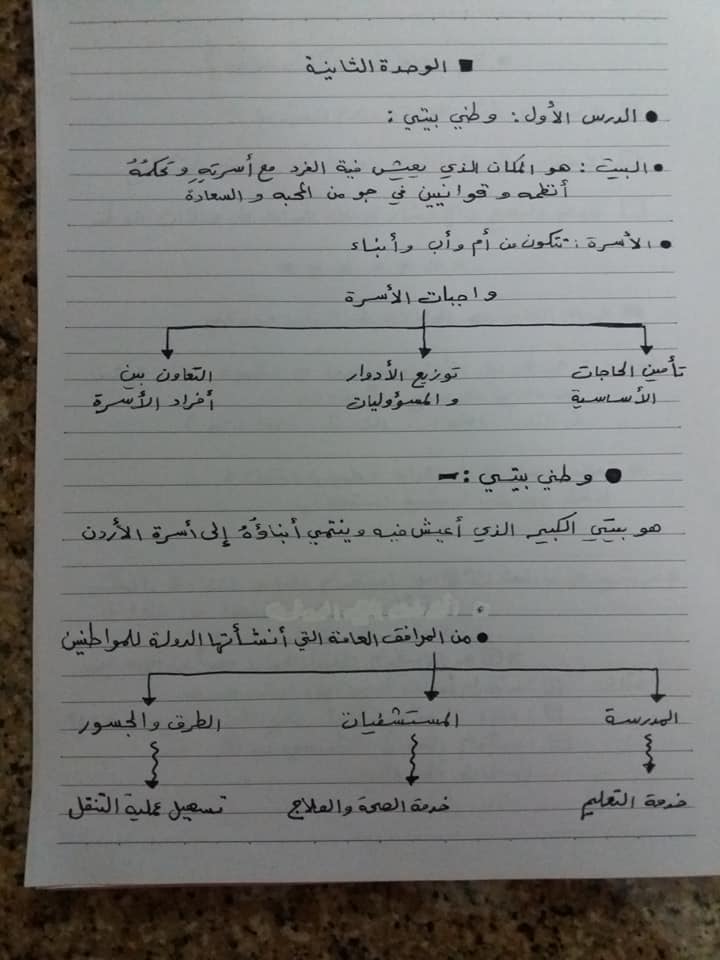 الوحدة الثانية
الدرس الأول: وطني بيتي:
البيت: هو المكان الذي يعيش فية الفرد مع أسرتهِ وتحكمُهُ
أنظمه وقوانيين في جو من المحبه والسعادة
الأسرة: تتكون من أم وأب وأبناء
واجبات الأسرة
تأمين الحاجات توزيع الأدوار التعاون بين
الأساسية والمسؤوليات أفراد الأسرة
وطني بيتي:-
هو بيتي الكبير الذي أعيش فيه وينتمي أبناؤُهُ إلى أسرة الأردن
من المرافق العامة التي أنشأتها الدولة للمواطنين
المدرسة المستشفيات الطرق والجسور
خدمة التعليم خدمة الصحة والعلاج تسهيل عملية التنقل